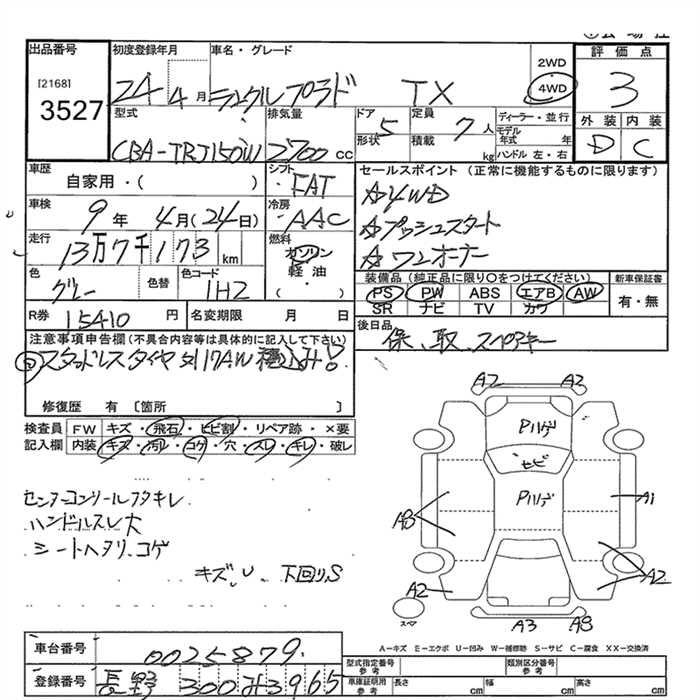 出品番号 初度登録年月 車名・グレード 2WD 評価点
[2168] 24 4月 ランクルプラド TX 4WD 3
3527
型式 排気量 ドア 5 定員 7人 ディーラー・並行 外装 内装
CBA-TRJ150W 2700cc 形状 積載 kg モデル年式 年 D C
ハンドル 左・右
車歴 シフト セールスポイント (正常に機能するものに限ります)
自家用・( ) FAT ☆4WD
車検 9年 4月(24日) 冷房 AAC ☆プッシュスタート
走行 13万7千173km 燃料 ガソリン ☆ワンオーナー
色 色替 色コード 軽油 装備品 (純正品に限り○をつけてください) 新車保証書
グレー 1H2 ( ) PS PW ABS エアB AW 有・無
SR ナビ TV カワ
R券 15410円 名変期限 月 日 後日品
保、取、スペアキー
注意事項申告欄(不具合内容等は具体的に記入して下さい)
スタッドレスタイヤ 17AW 積込み!
修復歴 有 〔箇所 〕
検査員 FW キズ・飛石・ヒビ割・リペア跡・×要
記入欄 内装 キズ・汚レ・コゲ・穴・スレ・キレ・破レ
A2 A2
Pハゲ
ヒビ
Pハゲ
センターコンソールフタキレ
ハンドルスレ大
シートヘタリ、コゲ
キズ、U 下回りS
A3 A1
A2 A2
スペア A3 A3
A-キズ E-エクボ U-凹み W-補修跡 S-サビ C-腐食 XX-交換済
車台番号 0025879
登録番号 長野 300 み 3965
型式指定番号 参考 類別区分番号 参考
車庫証明用 参考 長さ cm 幅 cm 高さ cm